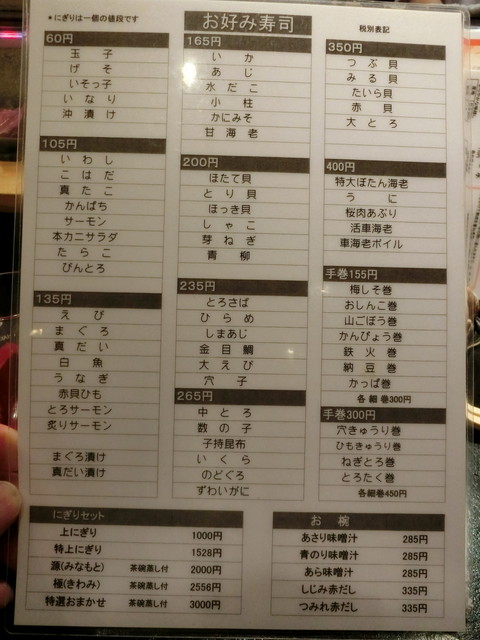 ＊にぎりは一個の値段です
お好み寿司
税別表記
60円
玉子
げそ
いそっ子
いなり
沖漬け
105円
いわし
こはだ
真たこ
かんぱち
サーモン
本カニサラダ
たらこ
びんとろ
135円
えび
まぐろ
真だい
白魚
うなぎ
赤貝ひも
とろサーモン
炙りサーモン
まぐろ漬け
真だい漬け
165円
いか
あじ
水だこ
小柱
かにみそ
甘海老
200円
ほたて貝
とり貝
ほっき貝
しゃこ
芽ねぎ
青柳
235円
とろさば
ひらめ
しまあじ
金目鯛
大えび
穴子
265円
中とろ
数の子
子持昆布
いくら
のどぐろ
ずわいがに
350円
つぶ貝
みる貝
たいら貝
赤貝
大とろ
400円
特大ぼたん海老
うに
桜肉あぶり
活車海老
車海老ボイル
手巻155円
梅しそ巻
おしんこ巻
山ごぼう巻
かんぴょう巻
鉄火巻
納豆巻
かっぱ巻
各細巻300円
手巻300円
穴きゅうり巻
ひもきゅうり巻
ねぎとろ巻
とろたく巻
各細巻450円
にぎりセット
上にぎり 1000円
特上にぎり 1528円
源(みなもと) 茶碗蒸し付 2000円
極(きわみ) 茶碗蒸し付 2556円
特選おまかせ 茶碗蒸し付 3000円
お椀
あさり味噌汁 285円
青のり味噌汁 285円
あら味噌汁 285円
しじみ赤だし 335円
つみれ赤だし 335円